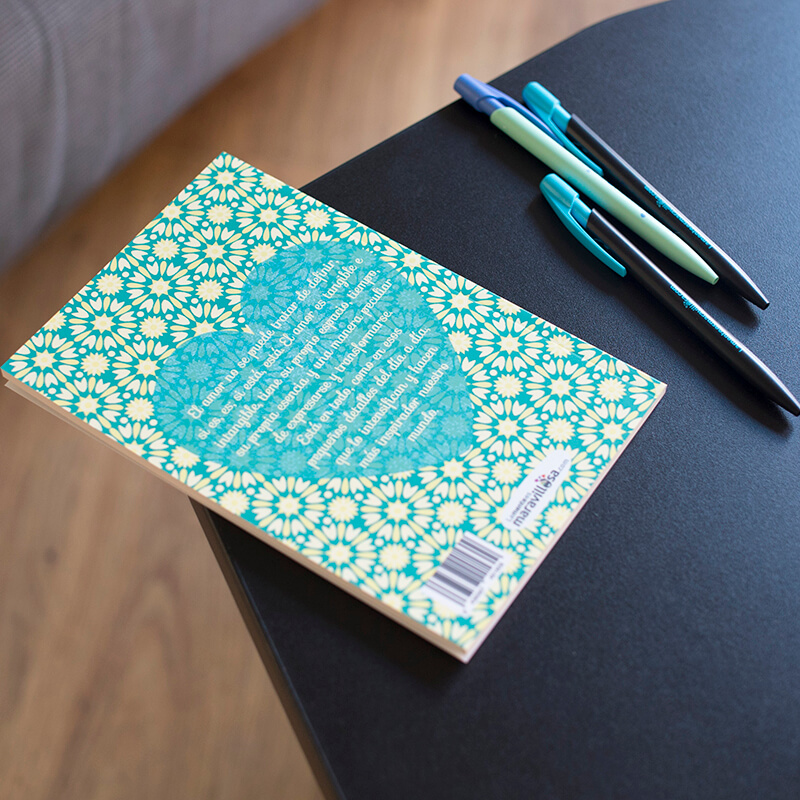 El amor no se puede tratar de definir,
si es, es; si está, está. El amor es tangible e
intangible, tiene su propio espacio, tiempo,
su propia esencia, y una manera peculiar
de expresarse y transformarse.
Está en todo como en esos
pequeños detalles del día a día
que lo intensifican y hacen
más inspirador nuestro
mundo.
La mente es
maravillosa.com